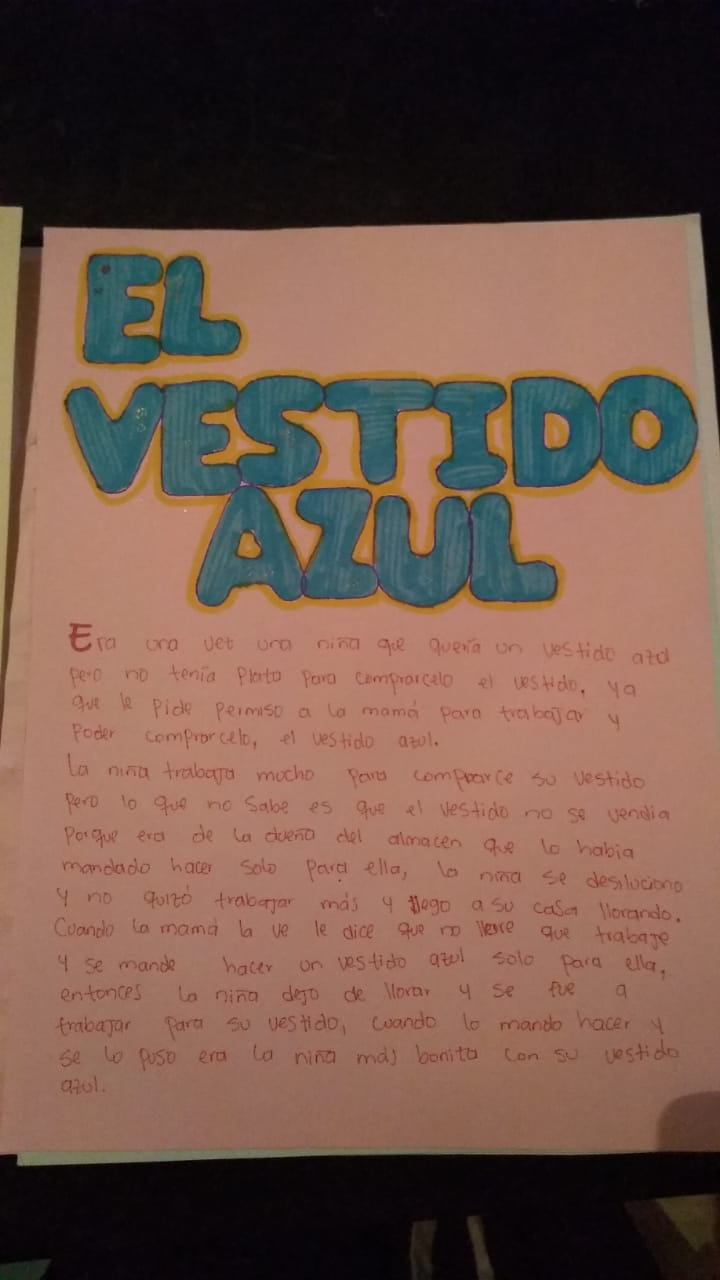 EL
VESTIDO
AZUL
Era una vez una niña que quería un vestido azul
pero no tenía plata para comprarcelo el vestido, ya
que le pide permiso a la mamá para trabajar y
poder comprarcelo, el vestido azul.
La niña trabaja mucho para comprarce su vestido
pero lo que no sabe es que el vestido no se vendia
porque era de la dueña del almacen que lo habia
mandado hacer solo para ella, la niña se desiluciono
y no quizó trabajar más y llego a su casa llorando.
Cuando la mamá la ve le dice que no llore que trabaje
y se mande hacer un vestido azul solo para ella,
entonces la niña dejo de llorar y se fue a
trabajar para su vestido, cuando lo mando hacer y
se lo puso era la niña más bonita con su vestido
azul.